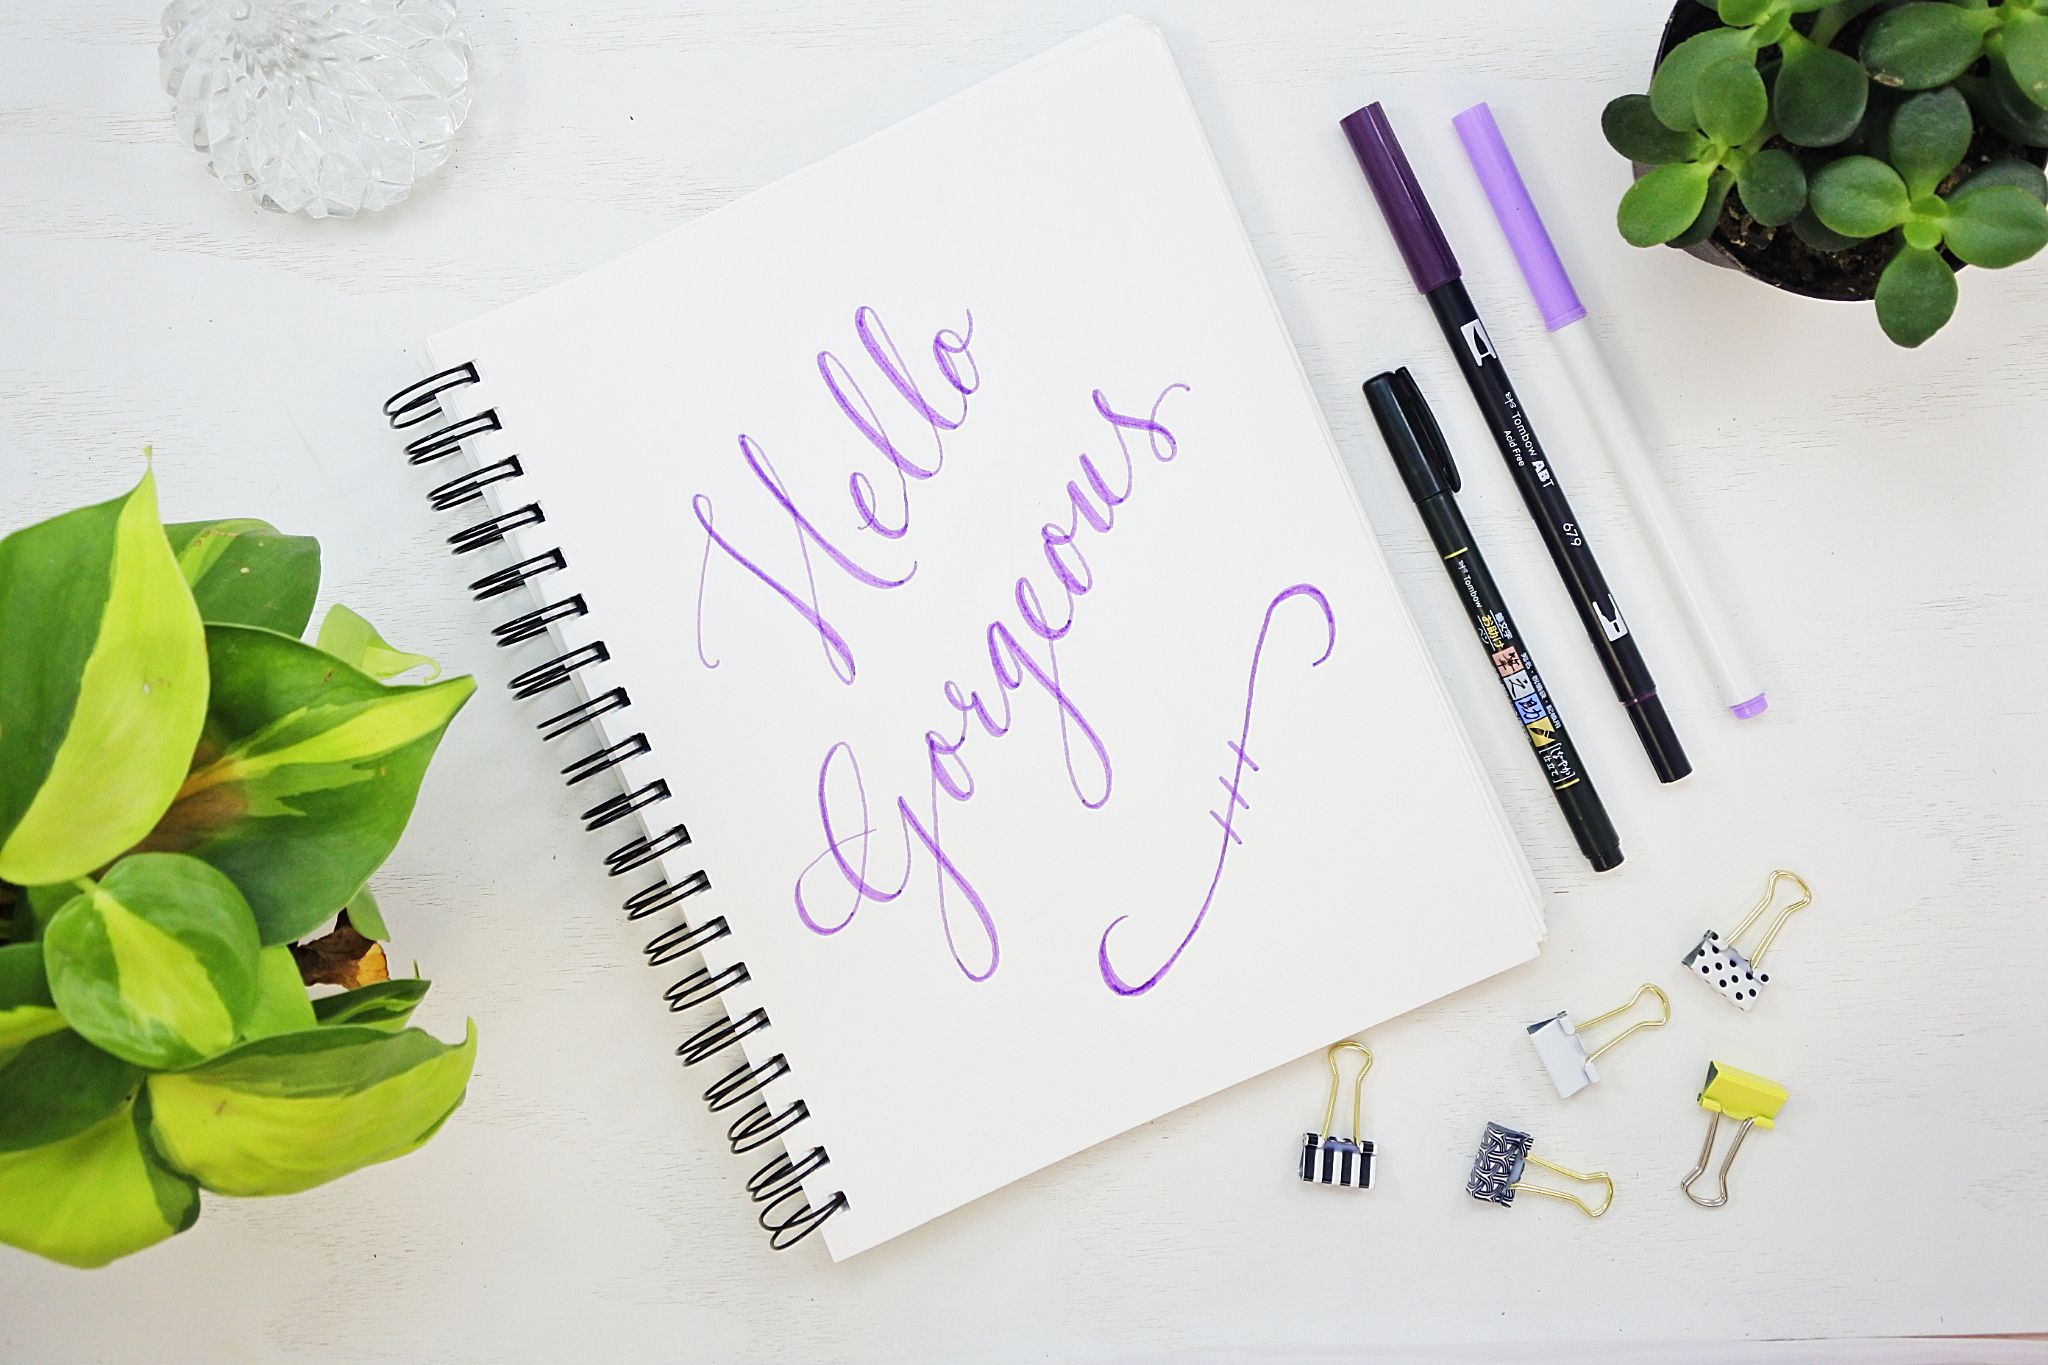 Hello
Gorgeous
Tombow ABT
Acid Free
679
Tombow
筆之助